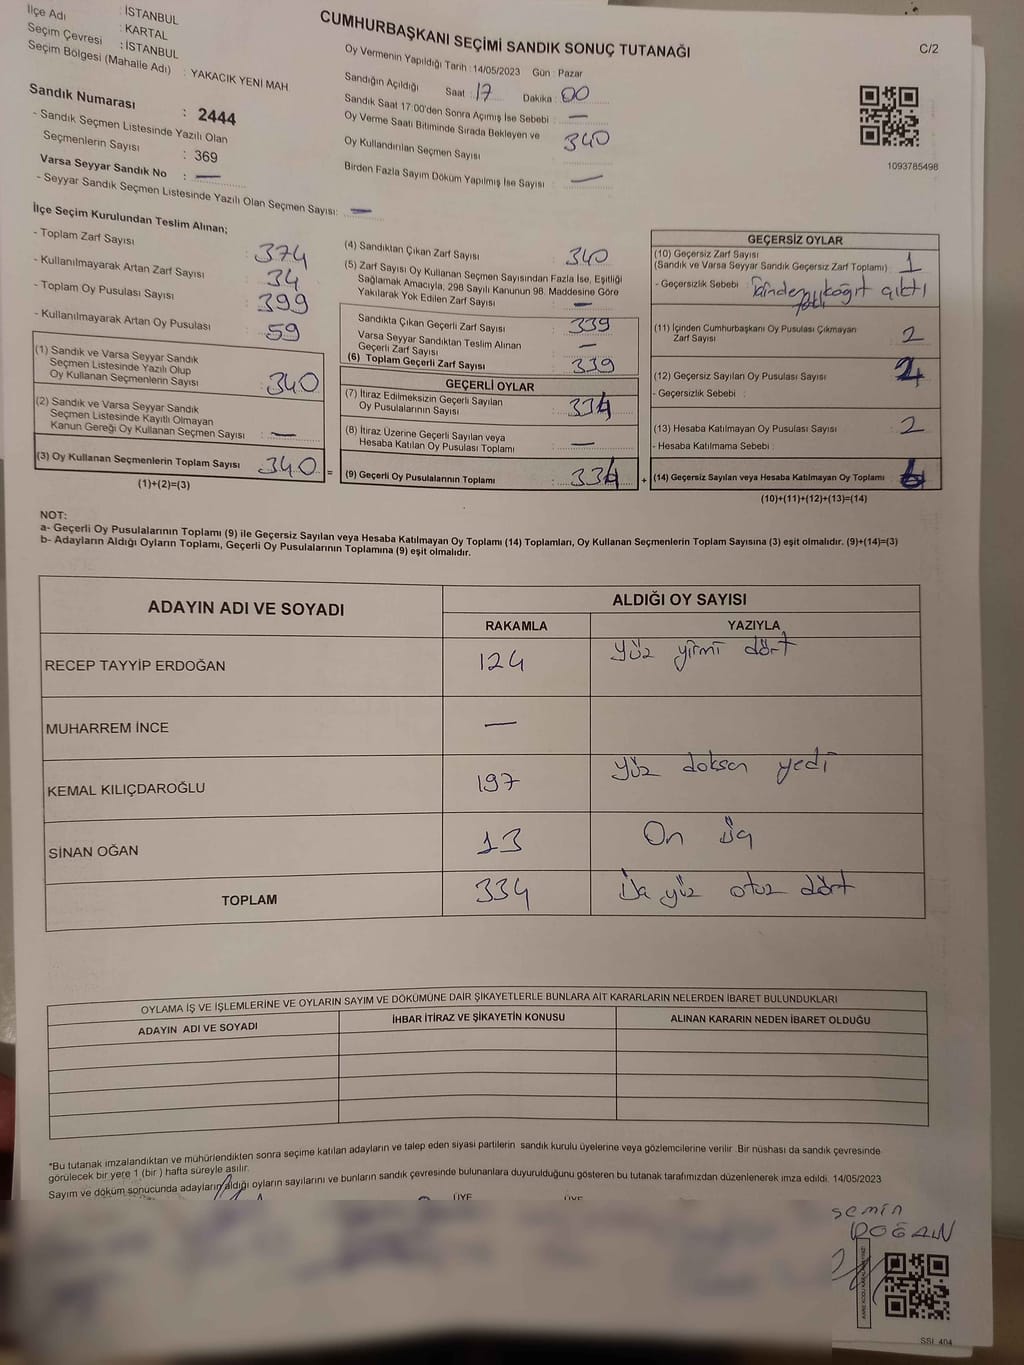 İlçe Adı : İSTANBUL
Seçim Çevresi : KARTAL
: İSTANBUL
Seçim Bölgesi (Mahalle Adı) : YAKACIK YENİ MAH.
Sandık Numarası : 2444
- Sandık Seçmen Listesinde Yazılı Olan
Seçmenlerin Sayısı : 369
Varsa Seyyar Sandık No : —
- Seyyar Sandık Seçmen Listesinde Yazılı Olan Seçmen Sayısı: —
CUMHURBAŞKANI SEÇİMİ SANDIK SONUÇ TUTANAĞI
C/2
Oy Vermenin Yapıldığı Tarih : 14/05/2023 Gün : Pazar
Sandığın Açıldığı Saat : 17 Dakika : 00
Sandık Saat 17:00'den Sonra Açımış İse Sebebi : —
Oy Verme Saati Bitiminde Sırada Bekleyen ve
Oy Kullandırılan Seçmen Sayısı : 340
Birden Fazla Sayım Döküm Yapılmış İse Sayısı : —
1093785498
İlçe Seçim Kurulundan Teslim Alınan;
- Toplam Zarf Sayısı : 374
- Kullanılmayarak Artan Zarf Sayısı : 34
- Toplam Oy Pusulası Sayısı : 399
- Kullanılmayarak Artan Oy Pusulası : 59
(1) Sandık ve Varsa Seyyar Sandık
Seçmen Listesinde Yazılı Olup
Oy Kullanan Seçmenlerin Sayısı : 340
(2) Sandık ve Varsa Seyyar Sandık
Seçmen Listesinde Kayıtlı Olmayan
Kanun Gereği Oy Kullanan Seçmen Sayısı : —
(3) Oy Kullanan Seçmenlerin Toplam Sayısı : 340 =
(1)+(2)=(3)
(4) Sandıktan Çıkan Zarf Sayısı : 340
(5) Zarf Sayısı Oy Kullanan Seçmen Sayısından Fazla İse, Eşitliği
Sağlamak Amacıyla, 298 Sayılı Kanunun 98. Maddesine Göre
Yakılarak Yok Edilen Zarf Sayısı : —
Sandıkta Çıkan Geçerli Zarf Sayısı : 339
Varsa Seyyar Sandıktan Teslim Alınan
Geçerli Zarf Sayısı : —
(6) Toplam Geçerli Zarf Sayısı : 339
GEÇERLİ OYLAR
(7) İtiraz Edilmeksizin Geçerli Sayılan
Oy Pusulalarının Sayısı : 334
(8) İtiraz Üzerine Geçerli Sayılan veya
Hesaba Katılan Oy Pusulası Toplamı : —
(9) Geçerli Oy Pusulalarının Toplamı : 334 +
GEÇERSİZ OYLAR
(10) Geçersiz Zarf Sayısı
(Sandık ve Varsa Seyyar Sandık Geçersiz Zarf Toplamı) : 1
- Geçersizlik Sebebi : İçinden kağıt çıktı
(11) İçinden Cumhurbaşkanı Oy Pusulası Çıkmayan
Zarf Sayısı : 2
(12) Geçersiz Sayılan Oy Pusulası Sayısı :
- Geçersizlik Sebebi :
(13) Hesaba Katılmayan Oy Pusulası Sayısı : 2
- Hesaba Katılmama Sebebi :
(14) Geçersiz Sayılan veya Hesaba Katılmayan Oy Toplamı : 6
(10)+(11)+(12)+(13)=(14)
NOT:
a- Geçerli Oy Pusulalarının Toplamı (9) ile Geçersiz Sayılan veya Hesaba Katılmayan Oy Toplamı (14) Toplamları, Oy Kullanan Seçmenlerin Toplam Sayısına (3) eşit olmalıdır. (9)+(14)=(3)
b- Adayların Aldığı Oyların Toplamı, Geçerli Oy Pusulalarının Toplamına (9) eşit olmalıdır.
ADAYIN ADI VE SOYADI ALDIĞI OY SAYISI
RAKAMLA YAZIYLA
RECEP TAYYİP ERDOĞAN 124 Yüz yirmi dört
MUHARREM İNCE —
KEMAL KILIÇDAROĞLU 197 Yüz doksan yedi
SİNAN OĞAN 13 On üç
TOPLAM 334 Üç yüz otuz dört
OYLAMA İŞ VE İŞLEMLERİNE VE OYLARIN SAYIM VE DÖKÜMÜNE DAİR ŞİKAYETLERLE BUNLARA AİT KARARLARIN NELERDEN İBARET BULUNDUKLARI
ADAYIN ADI VE SOYADI İHBAR İTİRAZ VE ŞİKAYETİN KONUSU ALINAN KARARIN NEDEN İBARET OLDUĞU
*Bu tutanak imzalandıktan ve mühürlendikten sonra seçime katılan adayların ve talep eden siyasi partilerin sandık kurulu üyelerine veya gözlemcilerine verilir .Bir nüshası da sandık çevresinde
görülecek bir yere 1 (bir ) hafta süreyle asılır.
Sayım ve döküm sonucunda adayların aldığı oyların sayılarını ve bunların sandık çevresinde bulunanlara duyurulduğunu gösteren bu tutanak tarafımızdan düzenlenerek imza edildi. 14/05/2023
ÜYE ÜYE
semin
DOĞAN
SSI 404